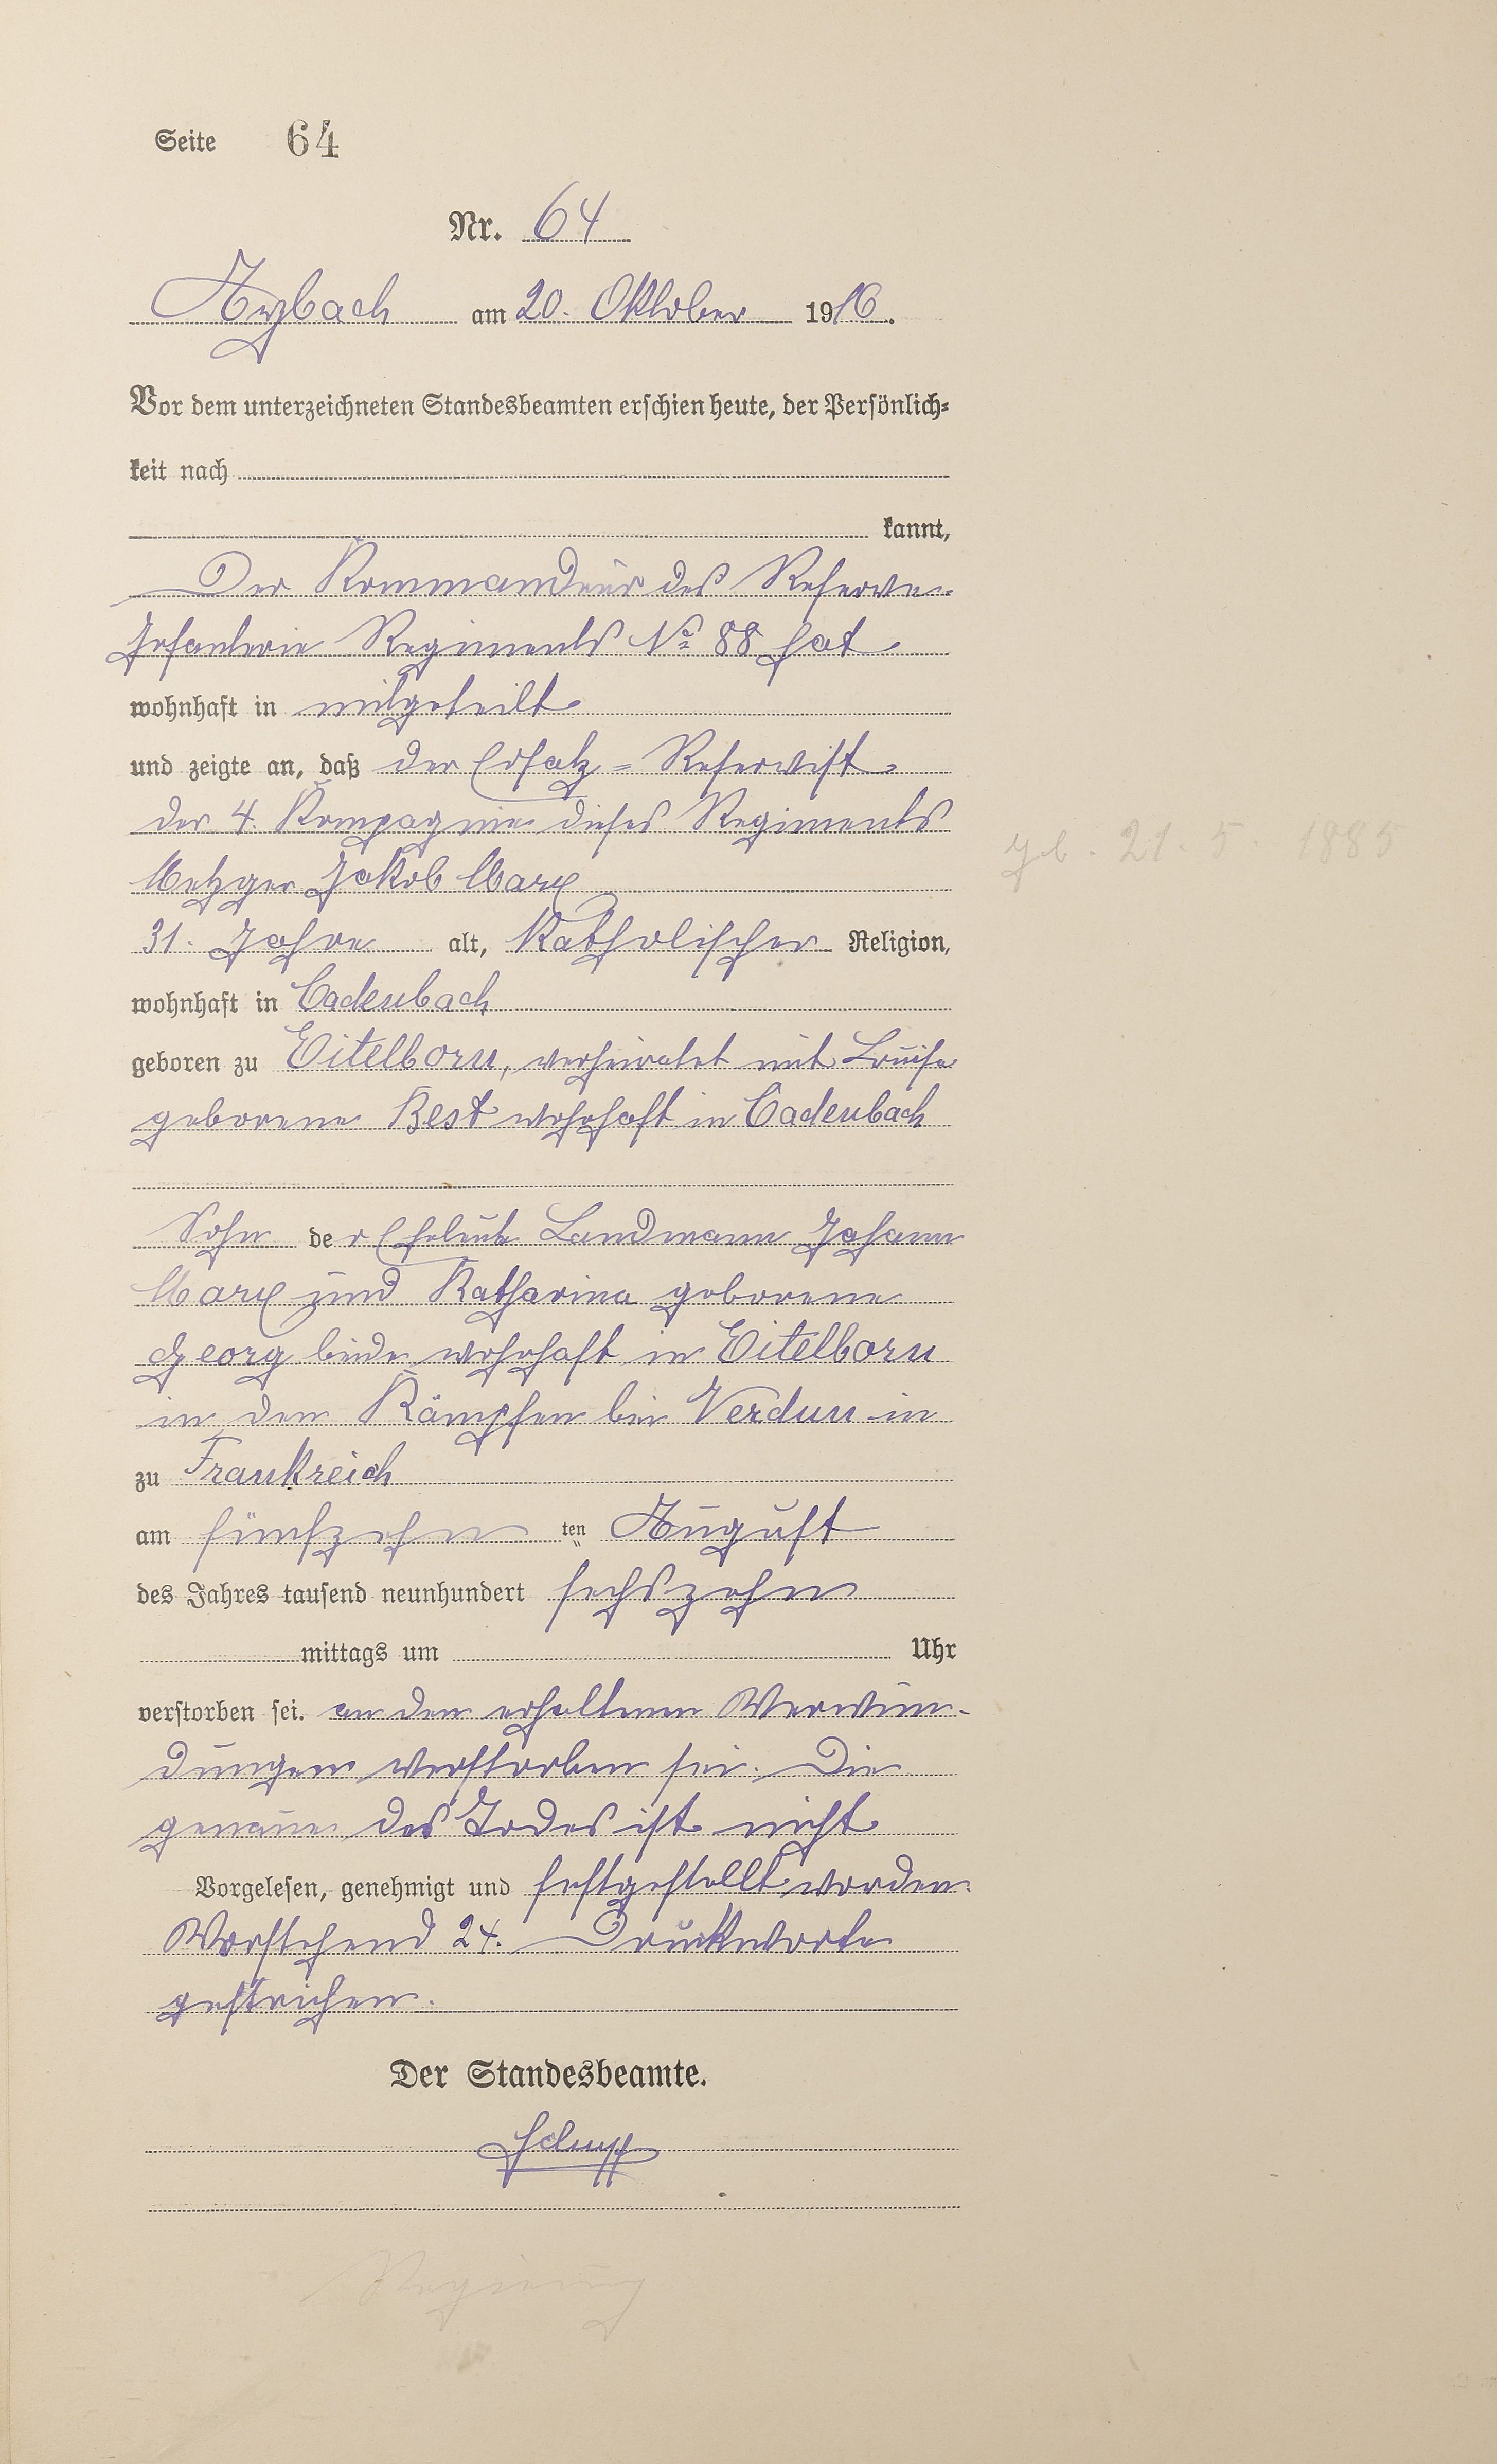 Seite 64
Nr. 64
Arzbach am 20. Oktober 1916.
Vor dem unterzeichneten Standesbeamten erschien heute, der Persönlich-
keit nach
kannt,
Der Kommandeur des Reserve-
Infanterie Regiments No 88 hat
wohnhaft in mitgeteilt
und zeigte an, daß der Ersatz-Reservist
der 4. Kompagnie dieses Regiments
Metzger Jakob Marx
31. Jahre alt, Katholischer Religion,
wohnhaft in Cadenbach
geboren zu Eitelborn, verheiratet mit Louise
geborene Best wohnhaft in Cadenbach
Sohn der Eheleute Landmann Johann
Marx und Katharina geborene
Georg beide wohnhaft in Eitelborn
in den Kämpfen bei Verdun in
zu Frankreich
am fünfzehn ten August
des Jahres tausend neunhundert sechszehn
mittags um Uhr
verstorben sei. an den erhaltenen Verwun-
dungen verstorben sei. Die
genaue des Todes ist nicht
Vorgelesen, genehmigt und festgestellt worden.
Vorstehend 24. Druckworte
gestrichen.
Der Standesbeamte.
Schupp
geb. 21. 5. 1885